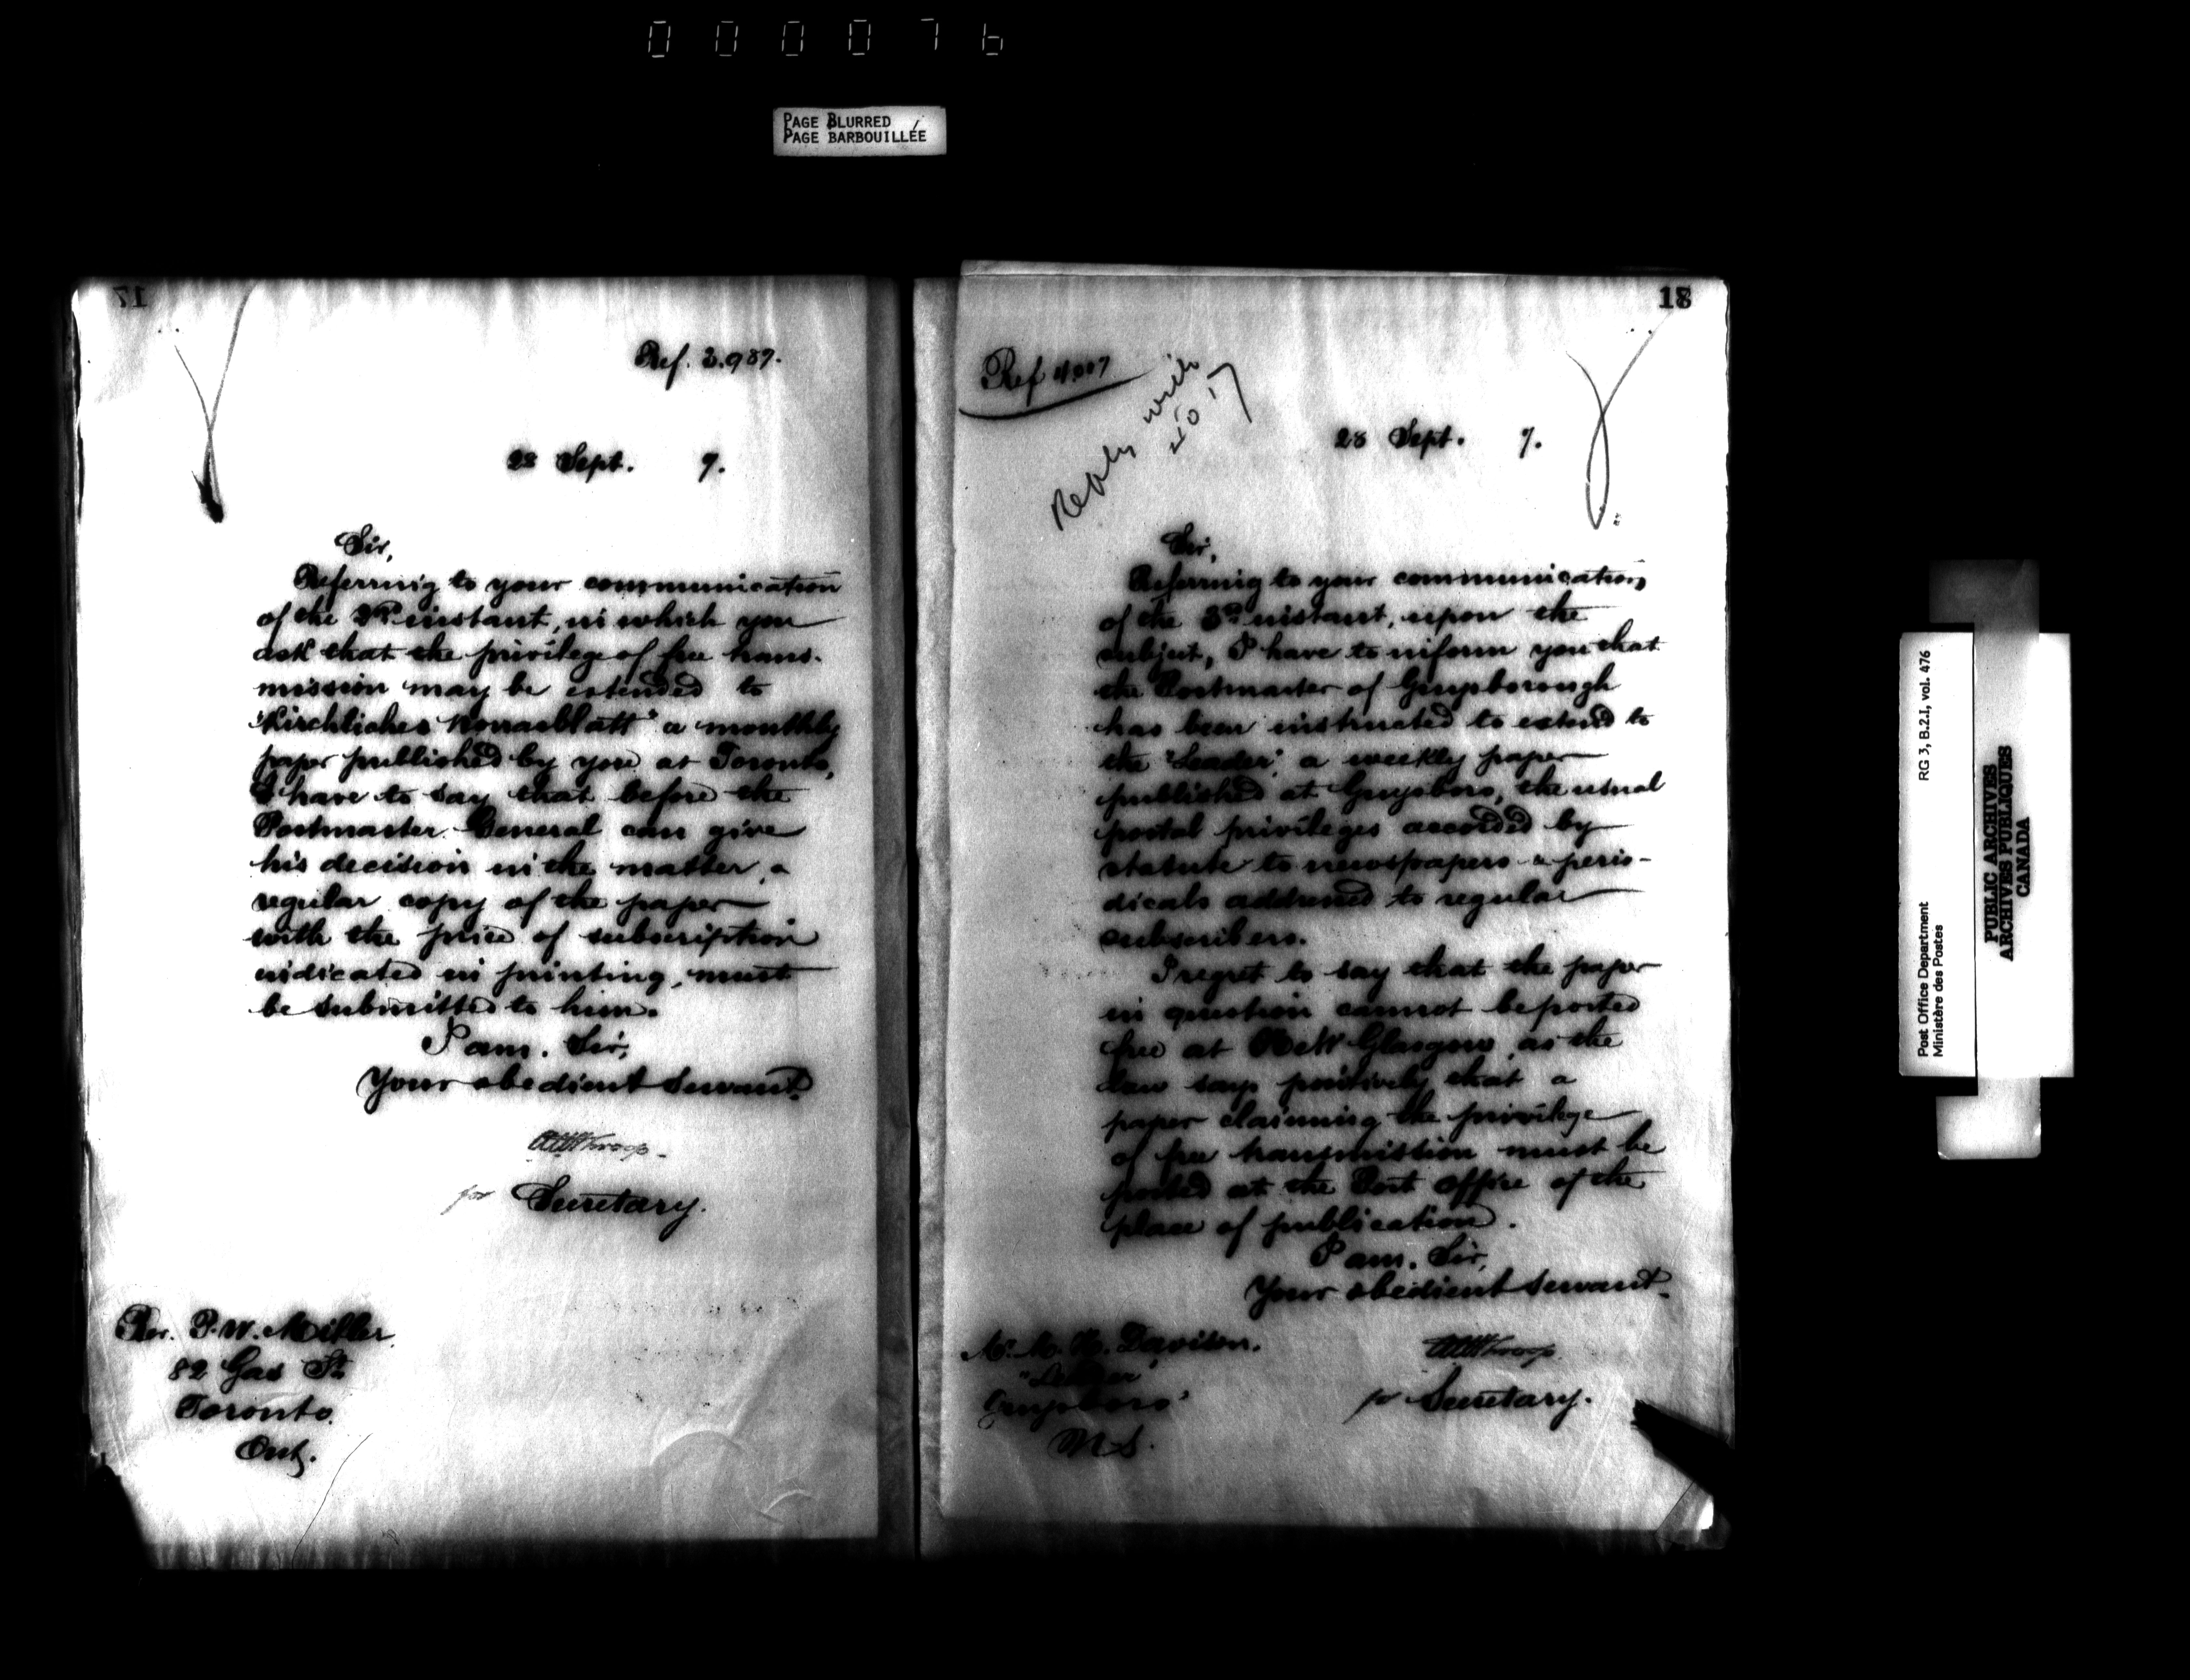 000076
PAGE BLURRED
PAGE BARBOUILLÉE
17
Ref. 3.987.
28 Sept. 7.
Sir,
Referring to your communication
of the instant, in which you
ask that the privilege of free trans-
mission may be extended to
"Kirchliches Monatsblatt" a monthly
paper published by you at Toronto,
I have to say that before the
Postmaster General can give
his decision in the matter, a
regular copy of the paper
with the price of subscription
indicated in printing, must
be submitted to him.
I am, Sir,
Your obedient servant.
for Secretary.
Rev. P. W. Miller
82 St
Toronto
Ont.
18
Ref 4.007
Reply with
28 Sept. 7.
Sir,
Referring to your communication
of the 3rd instant, upon the
subject, I have to inform you that
the Postmaster of Guysborough
has been instructed to extend to
the "Leader", a weekly paper
published at Guysboro, the usual
postal privileges accorded by
statute to newspapers & perio-
dicals addressed to regular
subscribers.
I regret to say that the paper
in question cannot be posted
free at New Glasgow, as the
law says positively that a
paper claiming the privilege
of free transmission must be
posted at the Post Office of the
place of publication.
I am, Sir,
Your obedient servant.
for Secretary.
Davison.
Guysboro'
N S.
Post Office Department RG 3, B.2.I, vol. 476
Ministère des Postes
PUBLIC ARCHIVES
ARCHIVES PUBLIQUES
CANADA